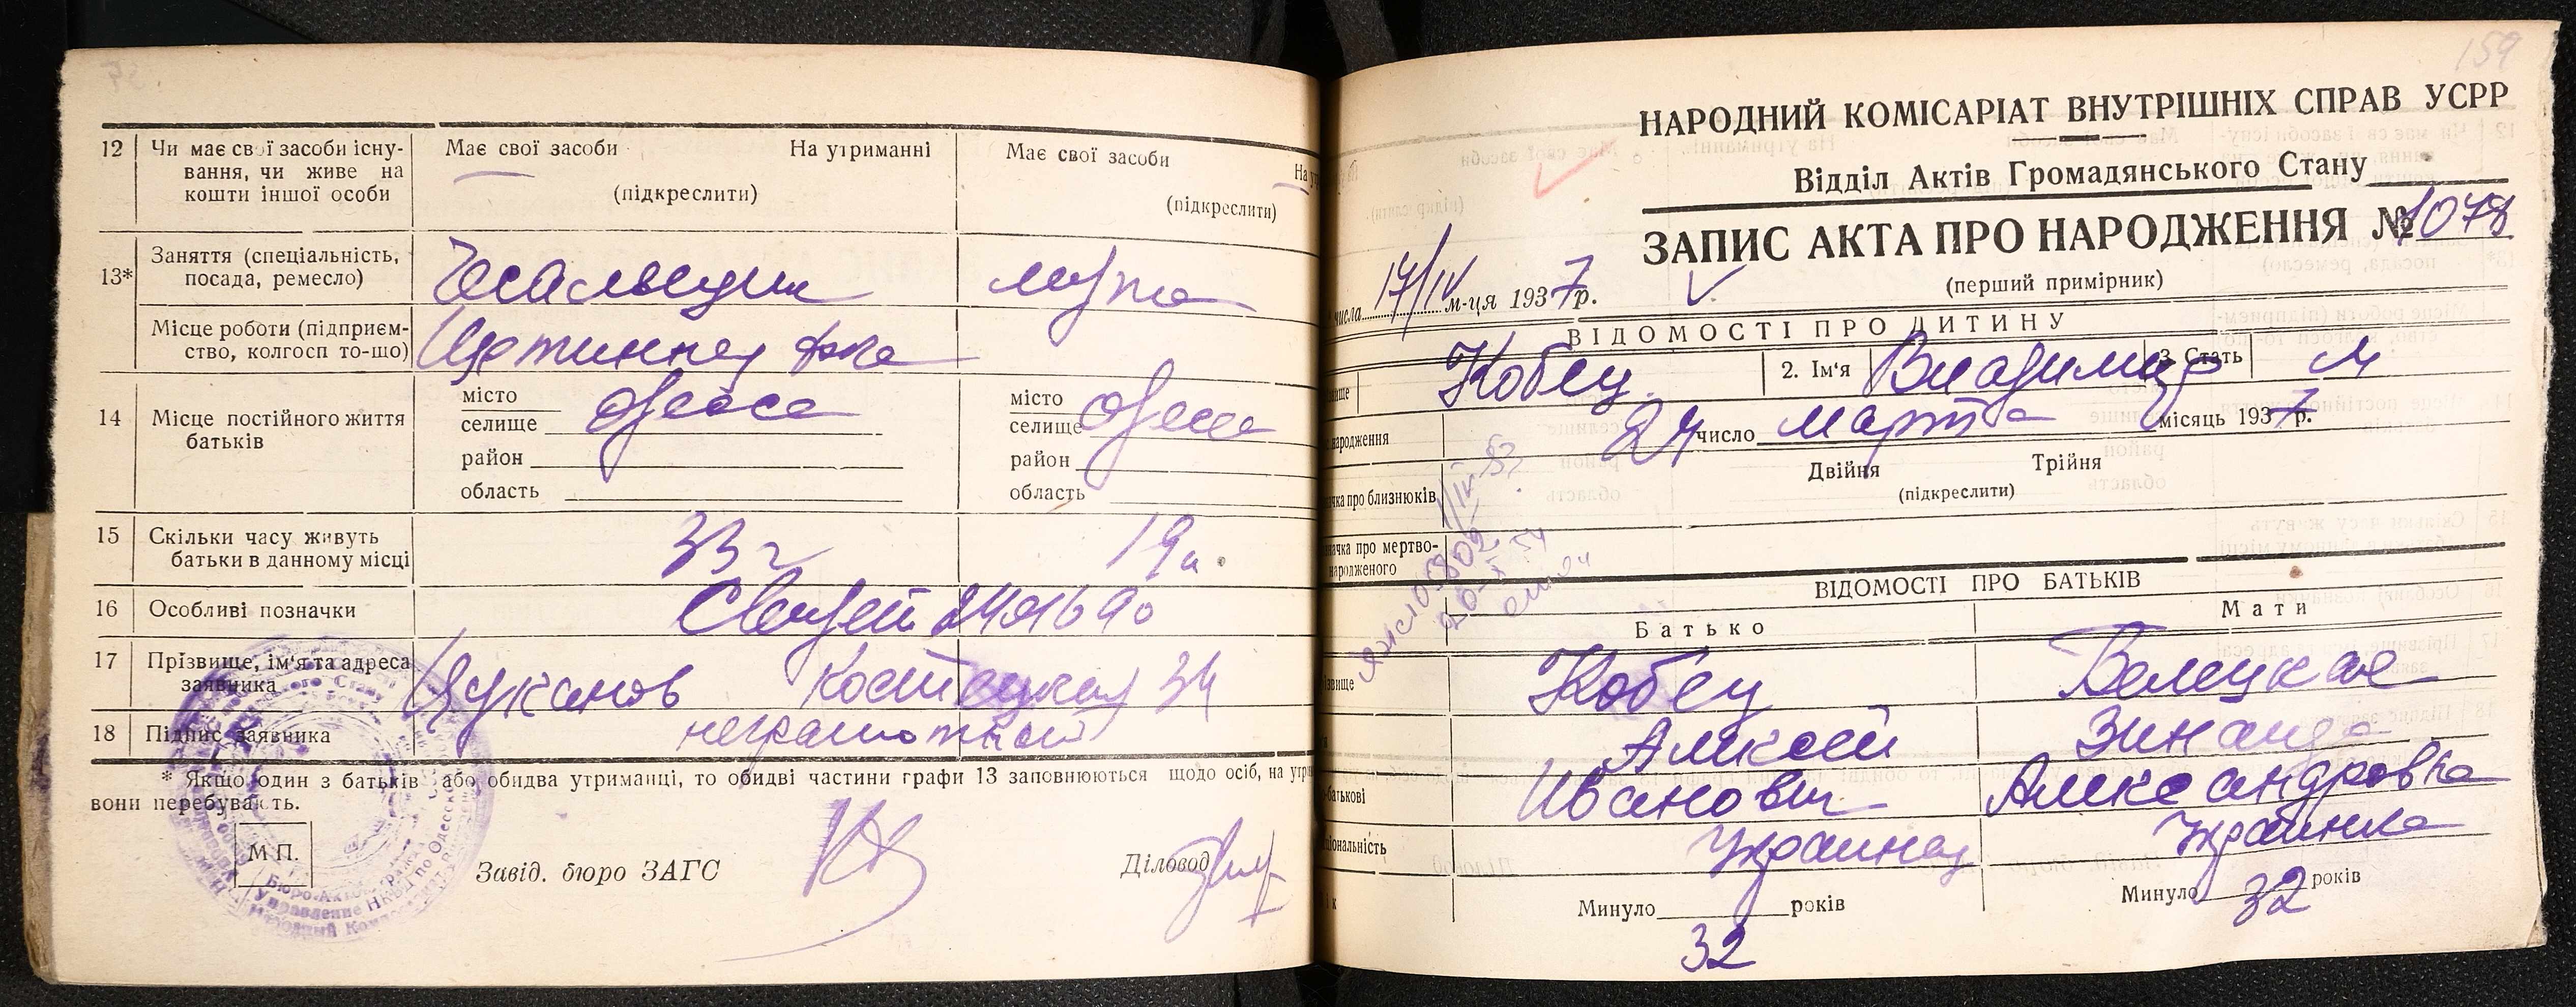 12 Чи має свої засоби існу-
вання, чи живе на
кошти іншої особи
Має свої засоби На утриманні
(підкреслити)
Має свої засоби
(підкреслити)
13* Заняття (спеціальність,
посада, ремесло)
Місце роботи (підприєм-
ство, колгосп то-що)
14 Місце постійного життя
батьків
місто
селище Одесса
район
область
місто
селище Одесса
район
область
15 Скільки часу живуть
батьки в данному місці
33 г
19 л.
16 Особливі позначки
17 Прізвище, ім'я та адреса
заявника
Цуканов 34
18 Підпис заявника
неграмотный
* Якщо один з батьків або обидва утриманці, то обидві частини графи 13 заповнюються щодо осіб, на
вони перебувають.
М П.
Завід. бюро ЗАГС
Діловод
159
НАРОДНИЙ КОМІСАРІАТ ВНУТРІШНІХ СПРАВ УСРР
Відділ Актів Громадянського Стану
ЗАПИС АКТА ПРО НАРОДЖЕННЯ № 1078
(перший примірник)
числа 17/IV м-ця 1937 р.
ВІДОМОСТІ ПРО ДИТИНУ
Кобец 2. Ім'я Владимир 3. Стать М
народження 24 число марта місяць 1937 р.
про близнюків
Двійня Трійня
(підкреслити)
про мертво-
народженого
ВІДОМОСТІ ПРО БАТЬКІВ
Батько Мати
Кобец Белецкая
Алексей Зинаида
Иванович Александровна
Украинец Украинка
Минуло 32 років
Минуло 32 років